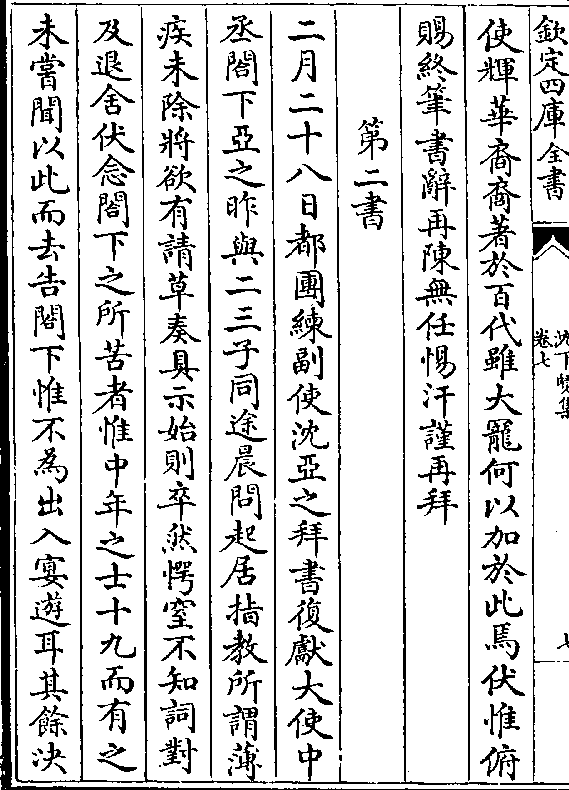 欽定四庫全書
沈下賢集
卷七
七
使輝華裔裔著於百代雖大寵何以加於此焉伏惟俯
賜終筆書辭再陳無任惕汗謹再拜
第二書
二月二十八日都團練副使沈亞之拜書復獻大使中
丞閤下亞之昨與二三子同途晨問起居指教所謂薄
疾未除將欲有請草奏具示始則卒然愕窒不知詞對
及退舍伏念閤下之所苦者惟中年之士十九而有之
未嘗聞以此而去告閤下惟不為出入宴遊耳其餘决